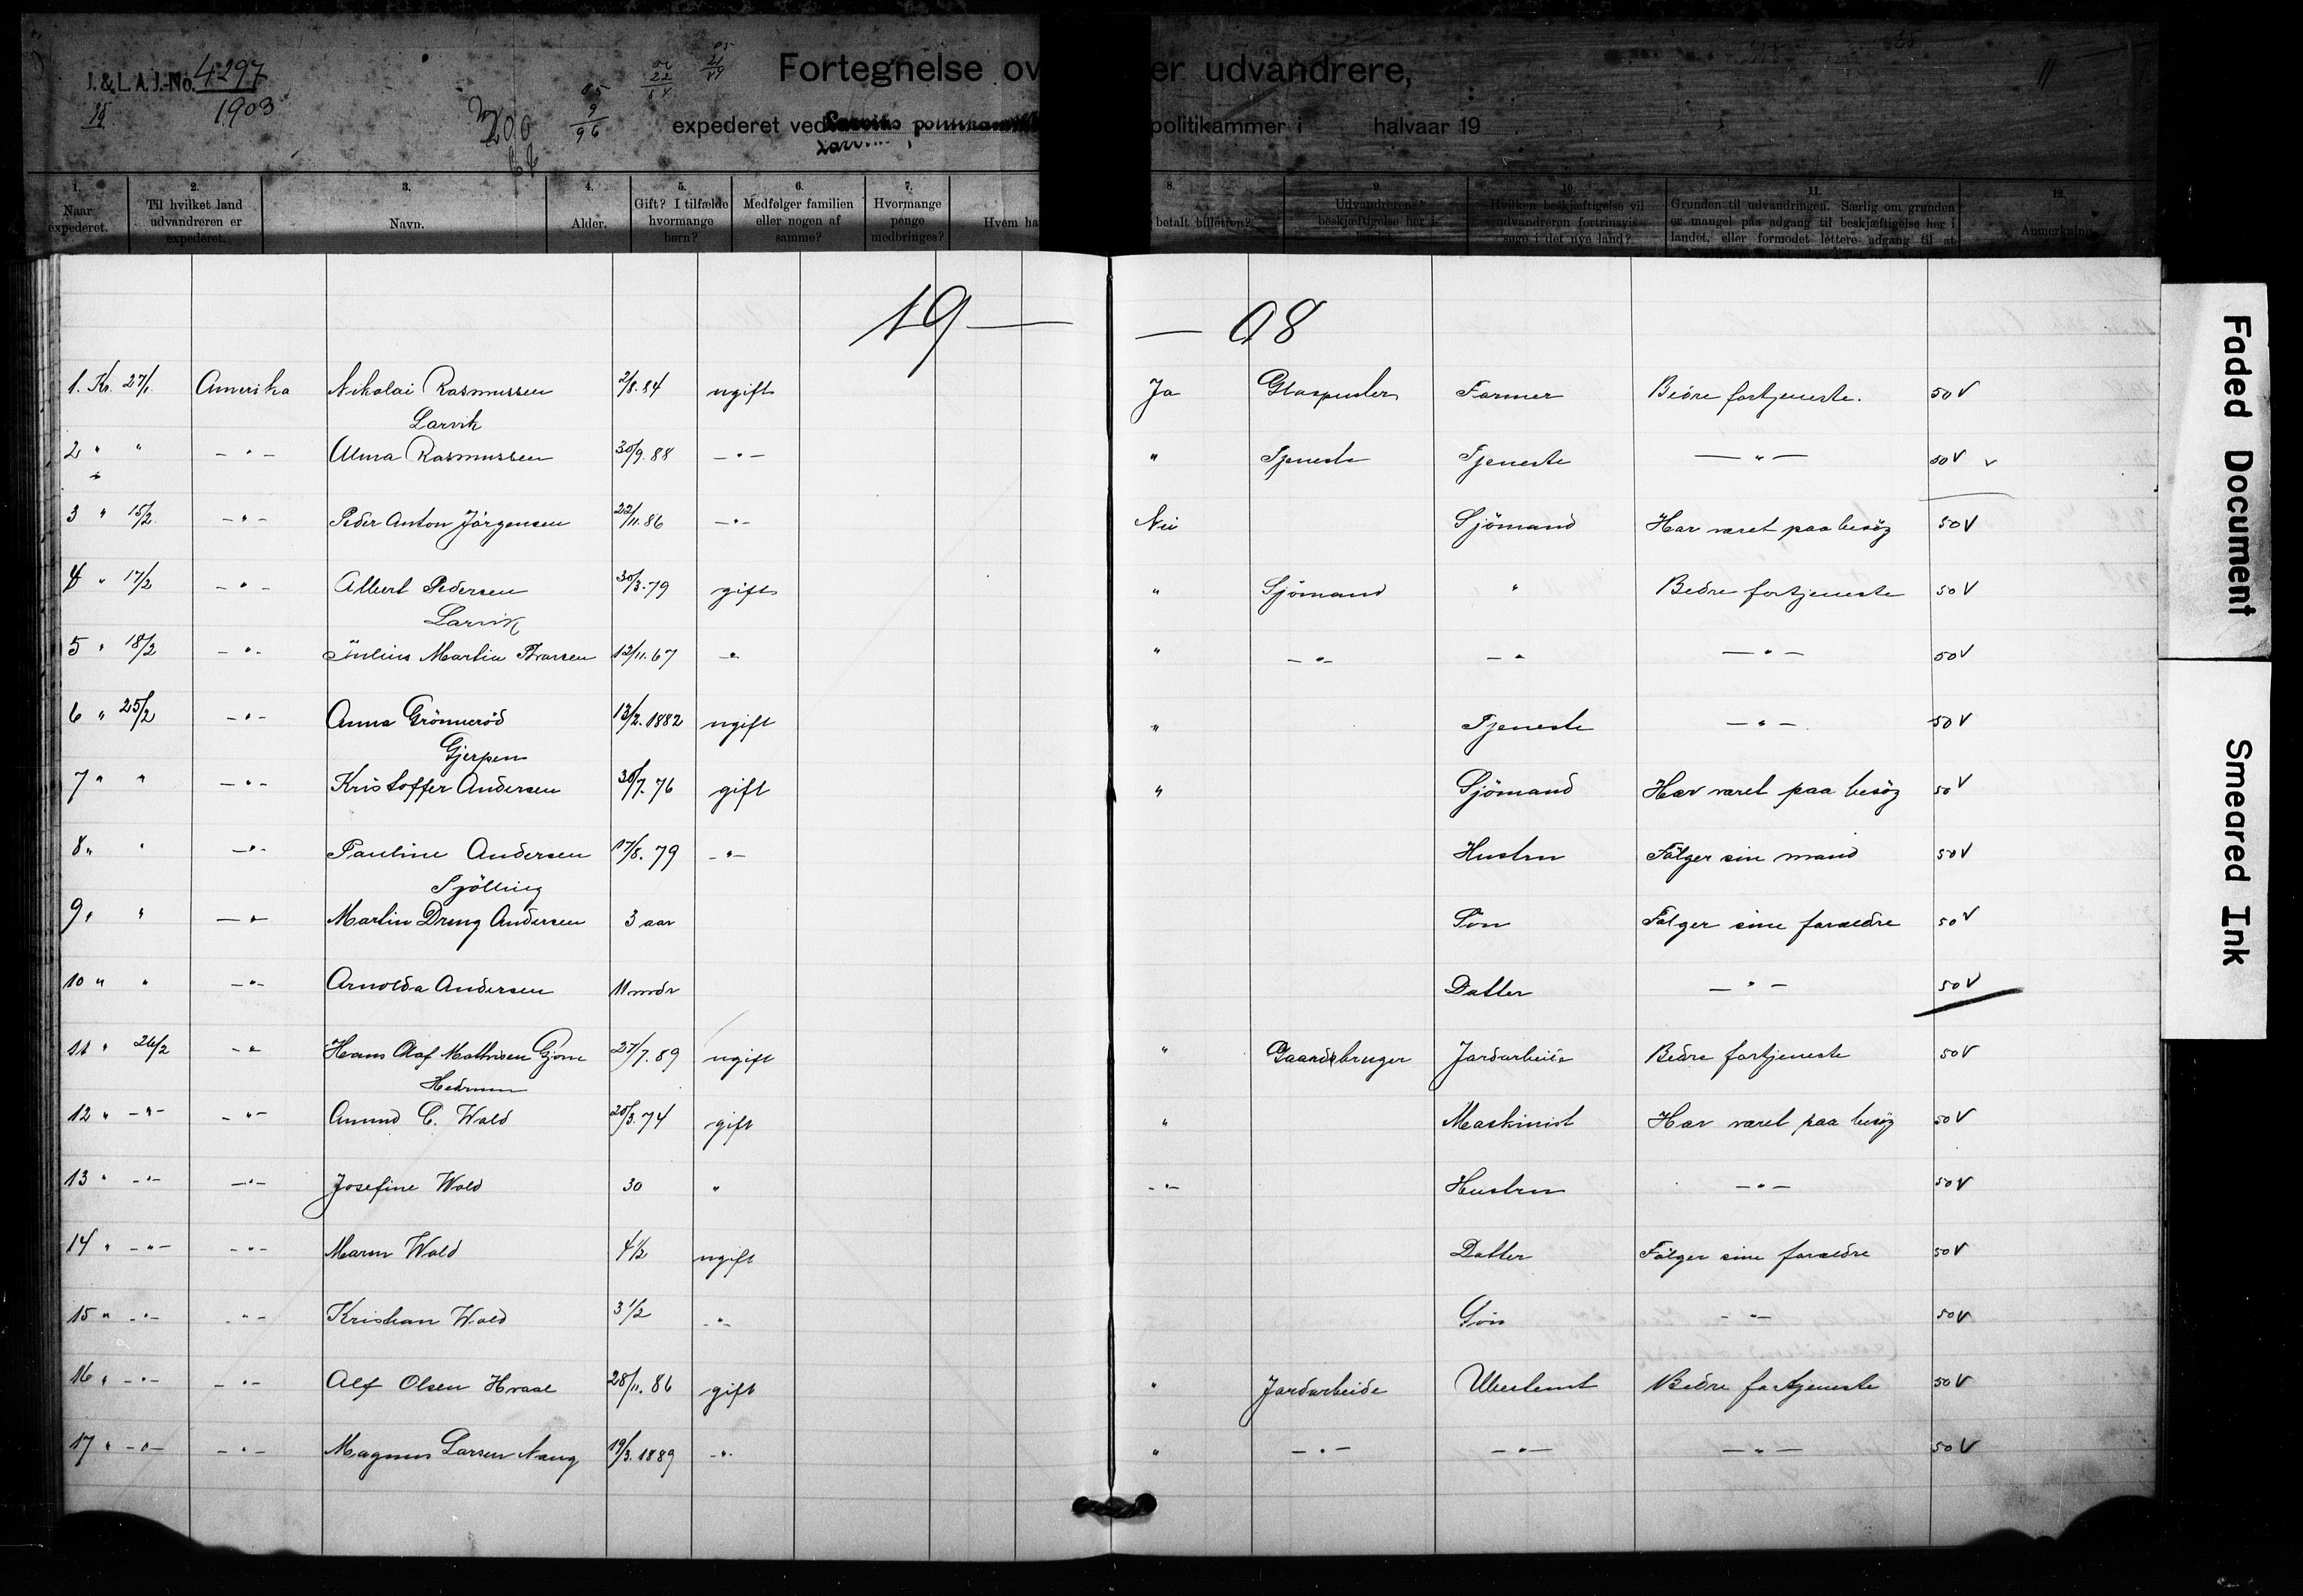 J. & L. A. J.-No. 4297
15 1903
200
05 9 96
02 22
05 21
Fortegnelse ov er udvandrere,
expederet ved Larviks politikammer i halvaar 19
1. 2. 3. 4. 5. 6. 7. 8. 9. 10. 11. 12.
Naar expederet.
Til hvilket land udvandreren er expederet.
Navn.
Alder.
Gift? I tilfælde hvormange børn?
Medfølger familien eller nogen af samme?
Hvormange penge medbringes?
Hvem ha betalt billetten?
Udvandrerens beskjæftigelse her i landet.
Hvilken beskjæftigelse vil udvandreren fortrinsvis søge i det nye land?
Grunden til udvandringen. Særlig om grunden er mangel paa adgang til beskjæftigelse her i landet, eller formodet lettere adgang til at
Anmerkning.
19 — — 08
1. Kr. 27/1. Amerika Nikolai Rasmussen 2/8.84 ugift Ja Glaspuster Farmer Bedre fortjeneste. 50 V
Larvik
2 " " — " — Alma Rasmussen 30/9.88 — " — " Tjeneste Tjeneste — " — 50 V v
3 " 15/2. — " — Peder Anton Jörgensen 22/11.86 — " — Nei Sjömand Har været paa besög 50 V
4 " 17/2 — " — Albert Pedersen 30/3.79 gift " Sjömand " Bedre fortjeneste 50 V
Larvik
5 " 18/2 — " — Julius Martin 12/11.67 — " " — " — — " — " — 50 V
6 " 25/2 — " — Anna Grönneröd 13/2.1882 ugift " Tjeneste — " — 50 V
Gjerpen
7 " " — " — Kristoffer Andersen 30/7.76 gift " Sjömand Har været paa besög 50 V
8 " " — " — Pauline Andersen 17/8.79 — " — Hustru Fölger sin mand 50 V
Tjölling
9 " " — " Martin Dreng Andersen 3 aar Sön Fölger sine forældre 50 V
10 " " — " — Arnolda Andersen 11 mdr Datter — " — 50 V
11 " 26/2 — " Hans Olaf Mathisen Gjone 27/7.89 ugift " Gaardsbruger Jordarbeide Bedre fortjeneste 50 V
Hedrum
12 " — " — — " — Amund C. Wold 20/3.74 gift " Maskinist Har været paa besög 50 V
13 " — " — — " — Josefine Wold 30 " — " — Hustru — " — 50 V
14 " — " — — " — Maren Wold 4 1/2 ugift Datter Fölger sine forældre 50 V
15 " — " — — " — Kristian Wold 3 1/2 — " — Sön — " — 50 V
16 " — " — — " — Alf Olsen Hvaal 28/11.86 gift " Jordarbeide Ubestemt Bedre fortjeneste 50 V
17 " — " — — " — Magnus Larsen Naug 19/3.1889 — " " — " — — " — — " — 50 V
Faded Document
Smeared Ink